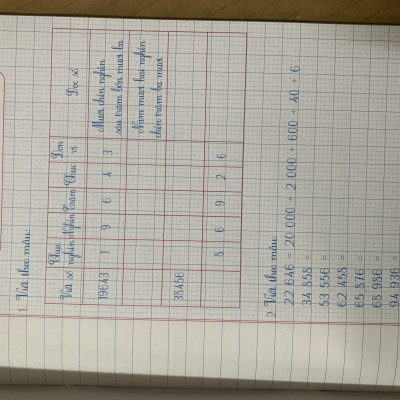 1. Viết theo mẫu:
Viết số Chục nghìn Nghìn Trăm Chục Đơn vị Đọc số
19643 1 9 6 4 3 Mười chín nghìn
sáu trăm bốn mươi ba
Năm mươi hai nghìn
chín trăm ba mươi
38456
8 6 9 2 6
2. Viết theo mẫu:
22 646 = 20 000 + 2 000 + 600 + 40 + 6
34 858 =
53 556 =
62 458 =
65 876 =
68 986 =
94 936 =